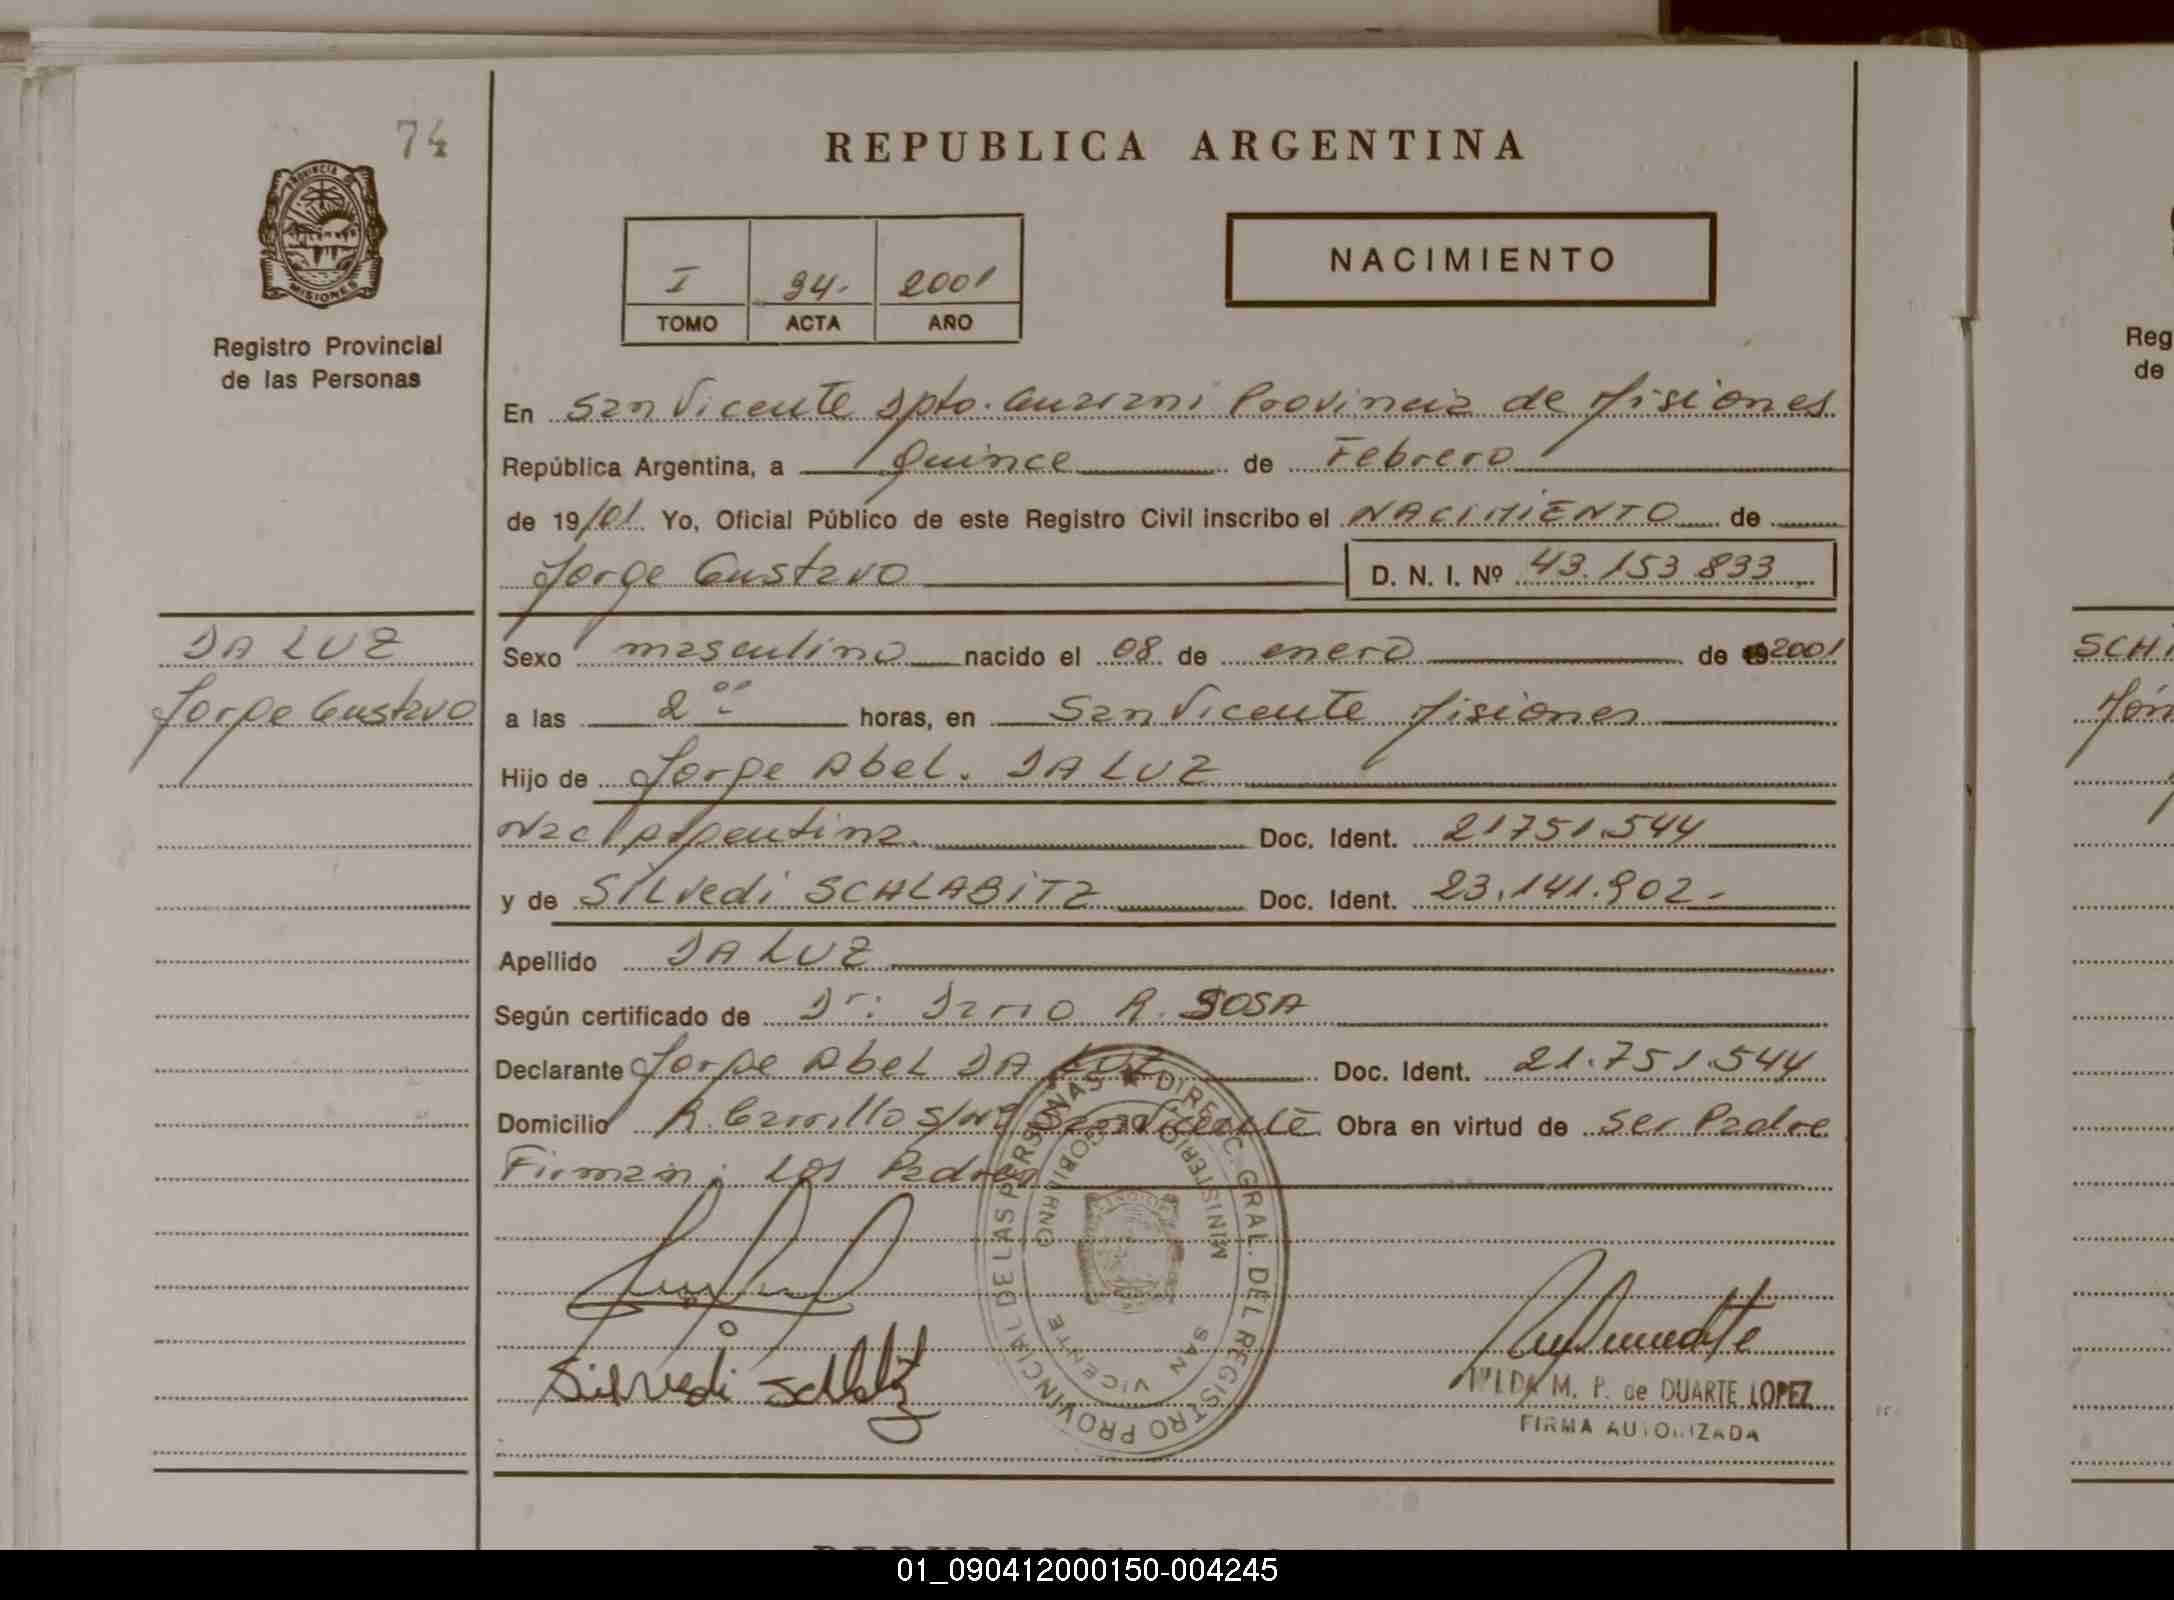 74
PROVINCIA DE
MISIONES
Registro Provincial
de las Personas
REPUBLICA ARGENTINA
NACIMIENTO
I 94. 2001
TOMO ACTA AÑO
En San Vicente Dpto. Guarani Provincia de Misiones
República Argentina, a Quince de Febrero
de 19/01 Yo, Oficial Público de este Registro Civil inscribo el NACIMIENTO de
Jorge Gustavo D. N. I. Nº 43.153.833
DA LUZ
Jorge Gustavo
Sexo masculino nacido el 08 de enero de 2001
a las 2 00 horas, en San Vicente Misiones
Hijo de Jorge Abel. DA LUZ
Nac Argentina. Doc. Ident. 21751.544
y de SILvedi SCHLABITZ Doc. Ident. 23.141.902-
Apellido DA LUZ
Según certificado de Dr: Dario R. SOSA
Declarante Jorge Abel DA LUZ Doc. Ident. 21.751.544
Domicilio R. Carrillo S/Nº San Vicente Obra en virtud de Ser Padre
Firman: Los Padres
DIREC. GRAL. DEL REGISTRO PROVINCIAL DE LAS PERSONAS
MINISTERIO GOBIERNO
SAN VICENTE
Silvedi
M. P. de DUARTE LOPEZ
FIRMA AUTORIZADA
Reg
de
SCHI
Món
01_090412000150-004245